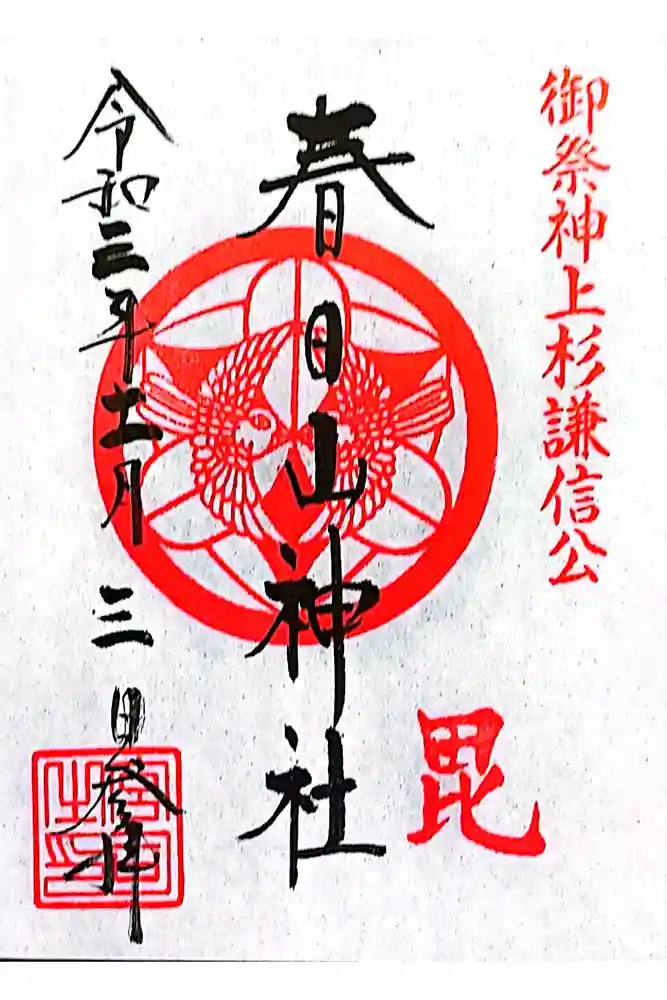 御祭神上杉謙信公
毘
春日山神社
令和三年十一月三日参拝
宮司之印